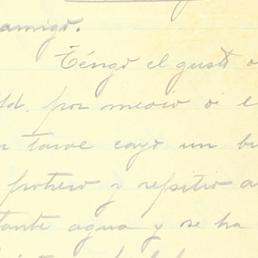 amigo.
Téngo el gusto
Ud. por medio d
tarde cayó un bu
potrero y
tante agua y se ha